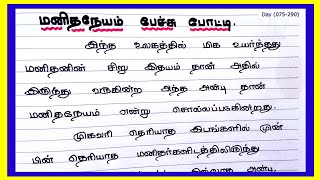 Day (075-290)
மனிதநேயம் பேச்சு போட்டி.
இந்த உலகத்தில் மிக உயர்ந்தது
மனிதனின் சிறு இதயம் தான் அதில்
இருந்து வருகின்ற அந்த அன்பு தான்
மனிதநேயம் என்று சொல்லப்படுகின்றது.
முகவரி தெரியாத இடங்களில் முன்
பின் தெரியாத மனிதர்களிடத்திலிருந்து
அன்பு.